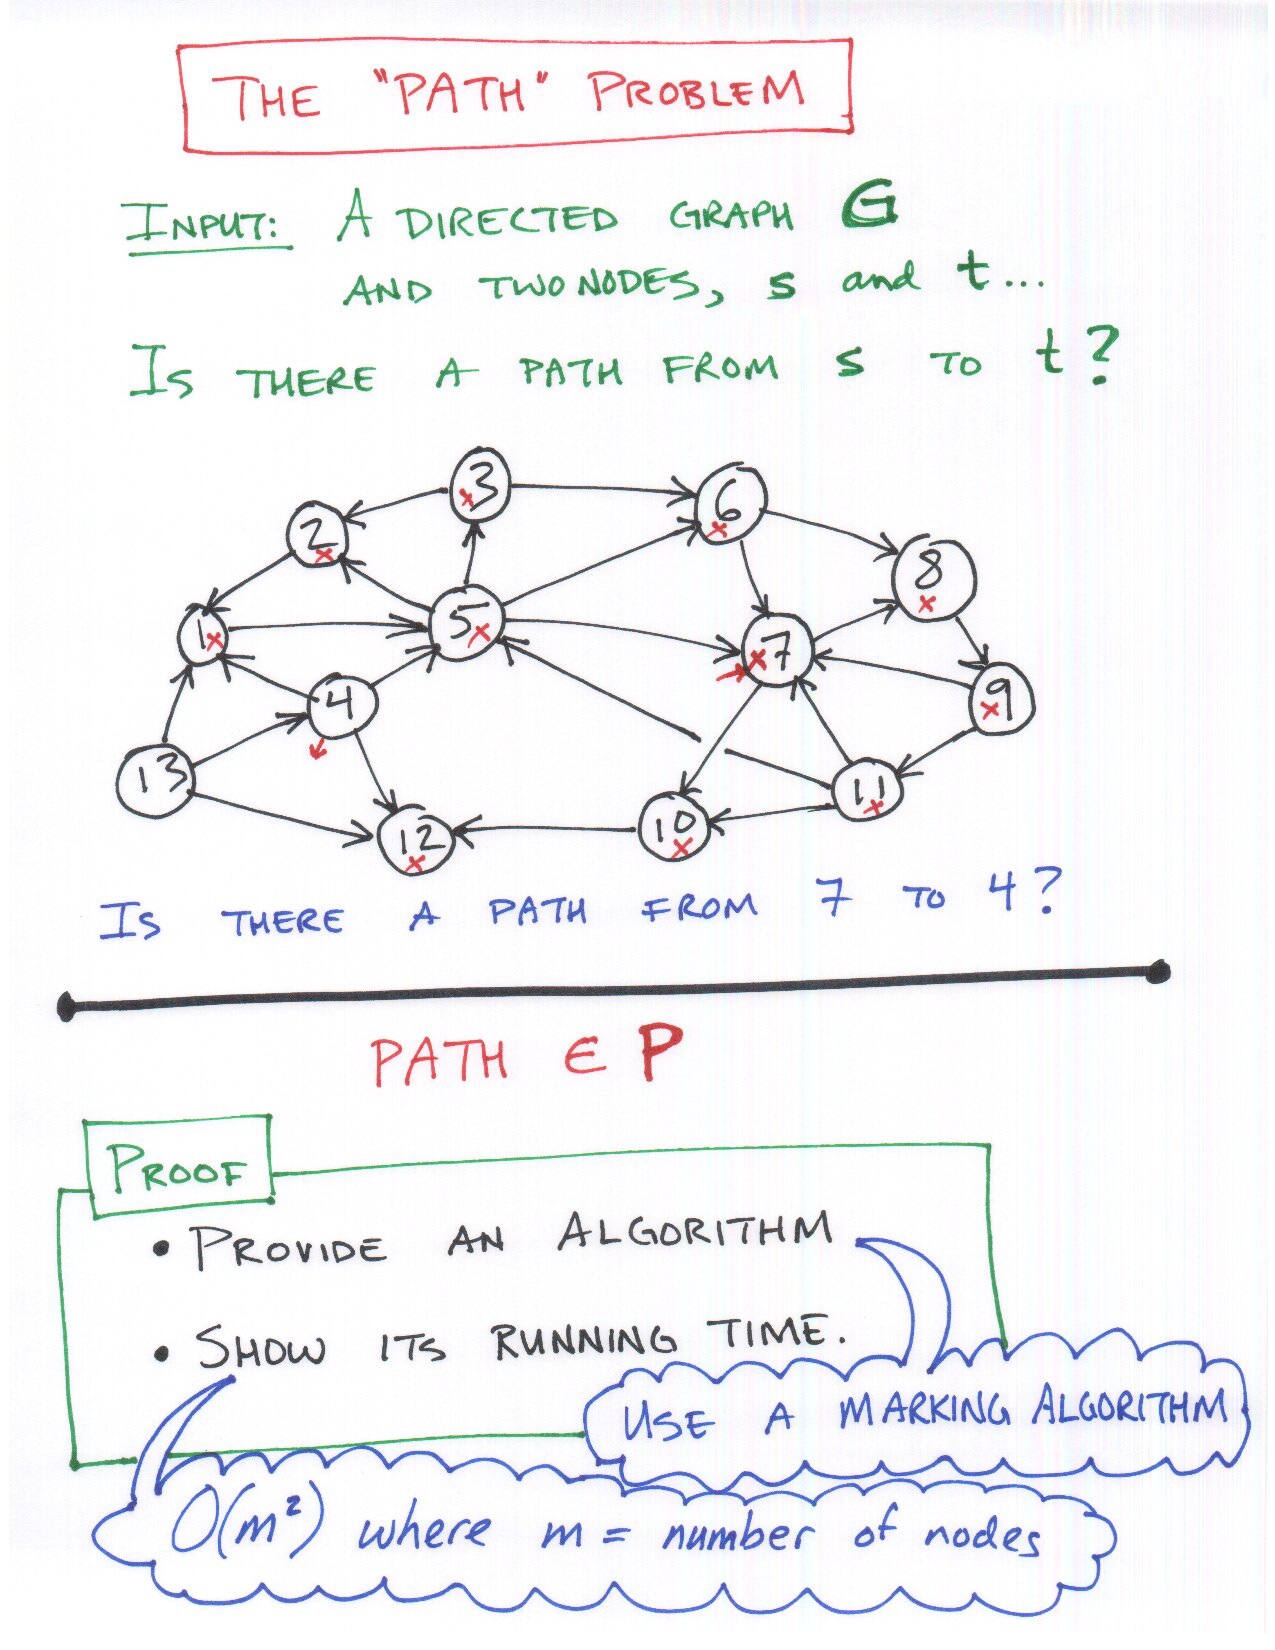 THE "PATH" PROBLEM
INPUT: A DIRECTED GRAPH G
AND TWO NODES, s and t...
IS THERE A PATH FROM s TO t?
3
6
2
8
1
5
7
4
9
13
11
12
10
IS THERE A PATH FROM 7 TO 4?
PATH ∈ P
PROOF
• PROVIDE AN ALGORITHM
• SHOW ITS RUNNING TIME.
USE A MARKING ALGORITHM
O(m²) where m = number of nodes